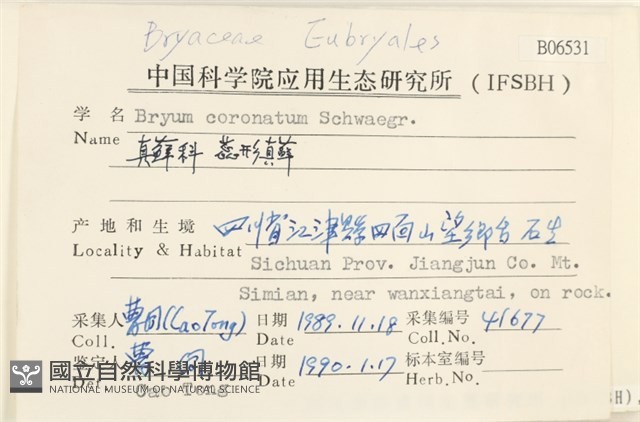 Bryaceae Eubryales
B06531
中国科学院应用生态研究所 (IFSBH)
学 名 Bryum coronatum Schwaegr.
Name 真藓科 蕊形真藓
产地和生境 四川省江津縣四面山望鄉台 石生
Locality & Habitat Sichuan Prov. Jiangjun Co. Mt.
Simian, near wanxiangtai, on rock.
采集人 曹同(CaoTong) 日期 1989.11.18 采集编号 41677
Coll. Date Coll.No.
鉴定人 曹 同 日期 1990.1.17 标本室编号
Det. Cao Tong Date Herb.No.
國立自然科學博物館
NATIONAL MUSEUM OF NATURAL SCIENCE
BH)